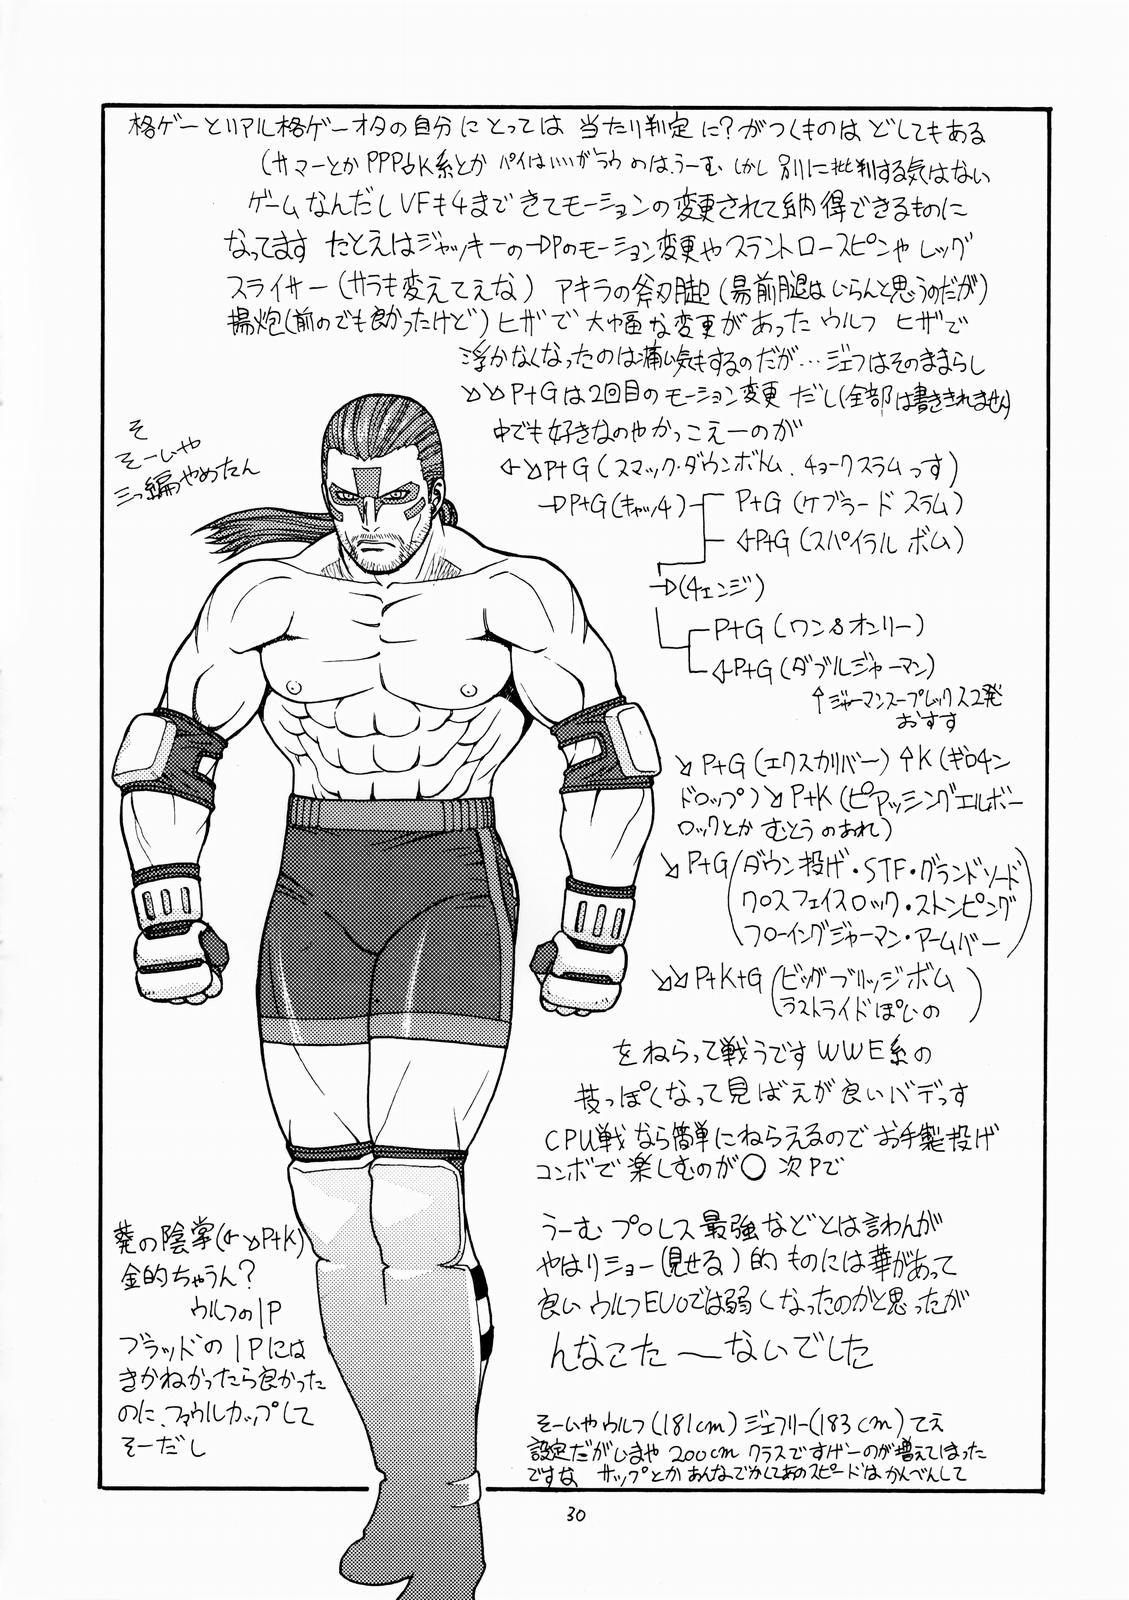 格ゲーとリアル格ゲーオタの自分にとっては 当たり判定に?がつくものは どしてもある
(サマーとか PPP↓K系とか パイはいいがラウのは、うーむ しかし 別に批判する気はない
ゲームなんだし VFも4まできてモーションの変更されて納得できるものに
なってます たとえばジャッキーの→Pのモーション変更やスラントロースピンや レッグ
スライサー(サラも変えてぇな) アキラの斧刃脚(昜前腿はいらんと思うのだが)
揚炮(前のでも良かったけど) ヒザで 大幅な変更があった ウルフ ヒザで
浮かなくなったのは痛い気もするのだが… ジェフはそのままらし
↘↘P+Gは2回目のモーション変更 だし(全部は書ききれません)
中でも好きなのやかっこえーのが
←↘P+G(スマック・ダウンボトム、チョークスラムっす)
→P+G(キャッチ)
P+G(ケブラードスラム)
←P+G(スパイラル ボム)
→(チェンジ)
P+G(ワン&オンリー)
←P+G(ダブルジャーマン)
↑ジャーマンスープレックス2発
おすすす
↘P+G(エクスカリバー)↑K(ギロチン
ドロップ)↘P+K(ピアッシングエルボー
ロックとか むとうのあれ)
↘P+G(ダウン投げ・STF・グランドソード
クロスフェイスロック・ストンピング
フローイングジャーマン・アームバー)
↘↘P+K+G(ビッグブリッジボム
ラストライドぽいの)
をねらって戦うです WWE系の
技っぽくなって見ばえが良いバデっす
CPU戦なら簡単にねらえるので お手製投げ
コンボで楽しむのが○ 次Pで
うーむ プロレス最強などとは言わんが
やはりショー(見せる)的ものには華があって
良い ウルフEVOでは弱くなったのかと思ったが
んなこた〜ないでした
そーいやウルフ(181cm)ジェフリー(183cm)てえ
設定だがいまや 200cmクラスですげーのが増えてしまった
ですな サップとか あんなでかしてあのスピードは かんべんして
そ
そーいや
三つ編やめたん
葵の陰掌(←↘P+K)
金的ちゃうん?
ウルフの1P
ブラッドの1Pには
きかねかったら良かった
のに、ファウルカップして
そーだし
30